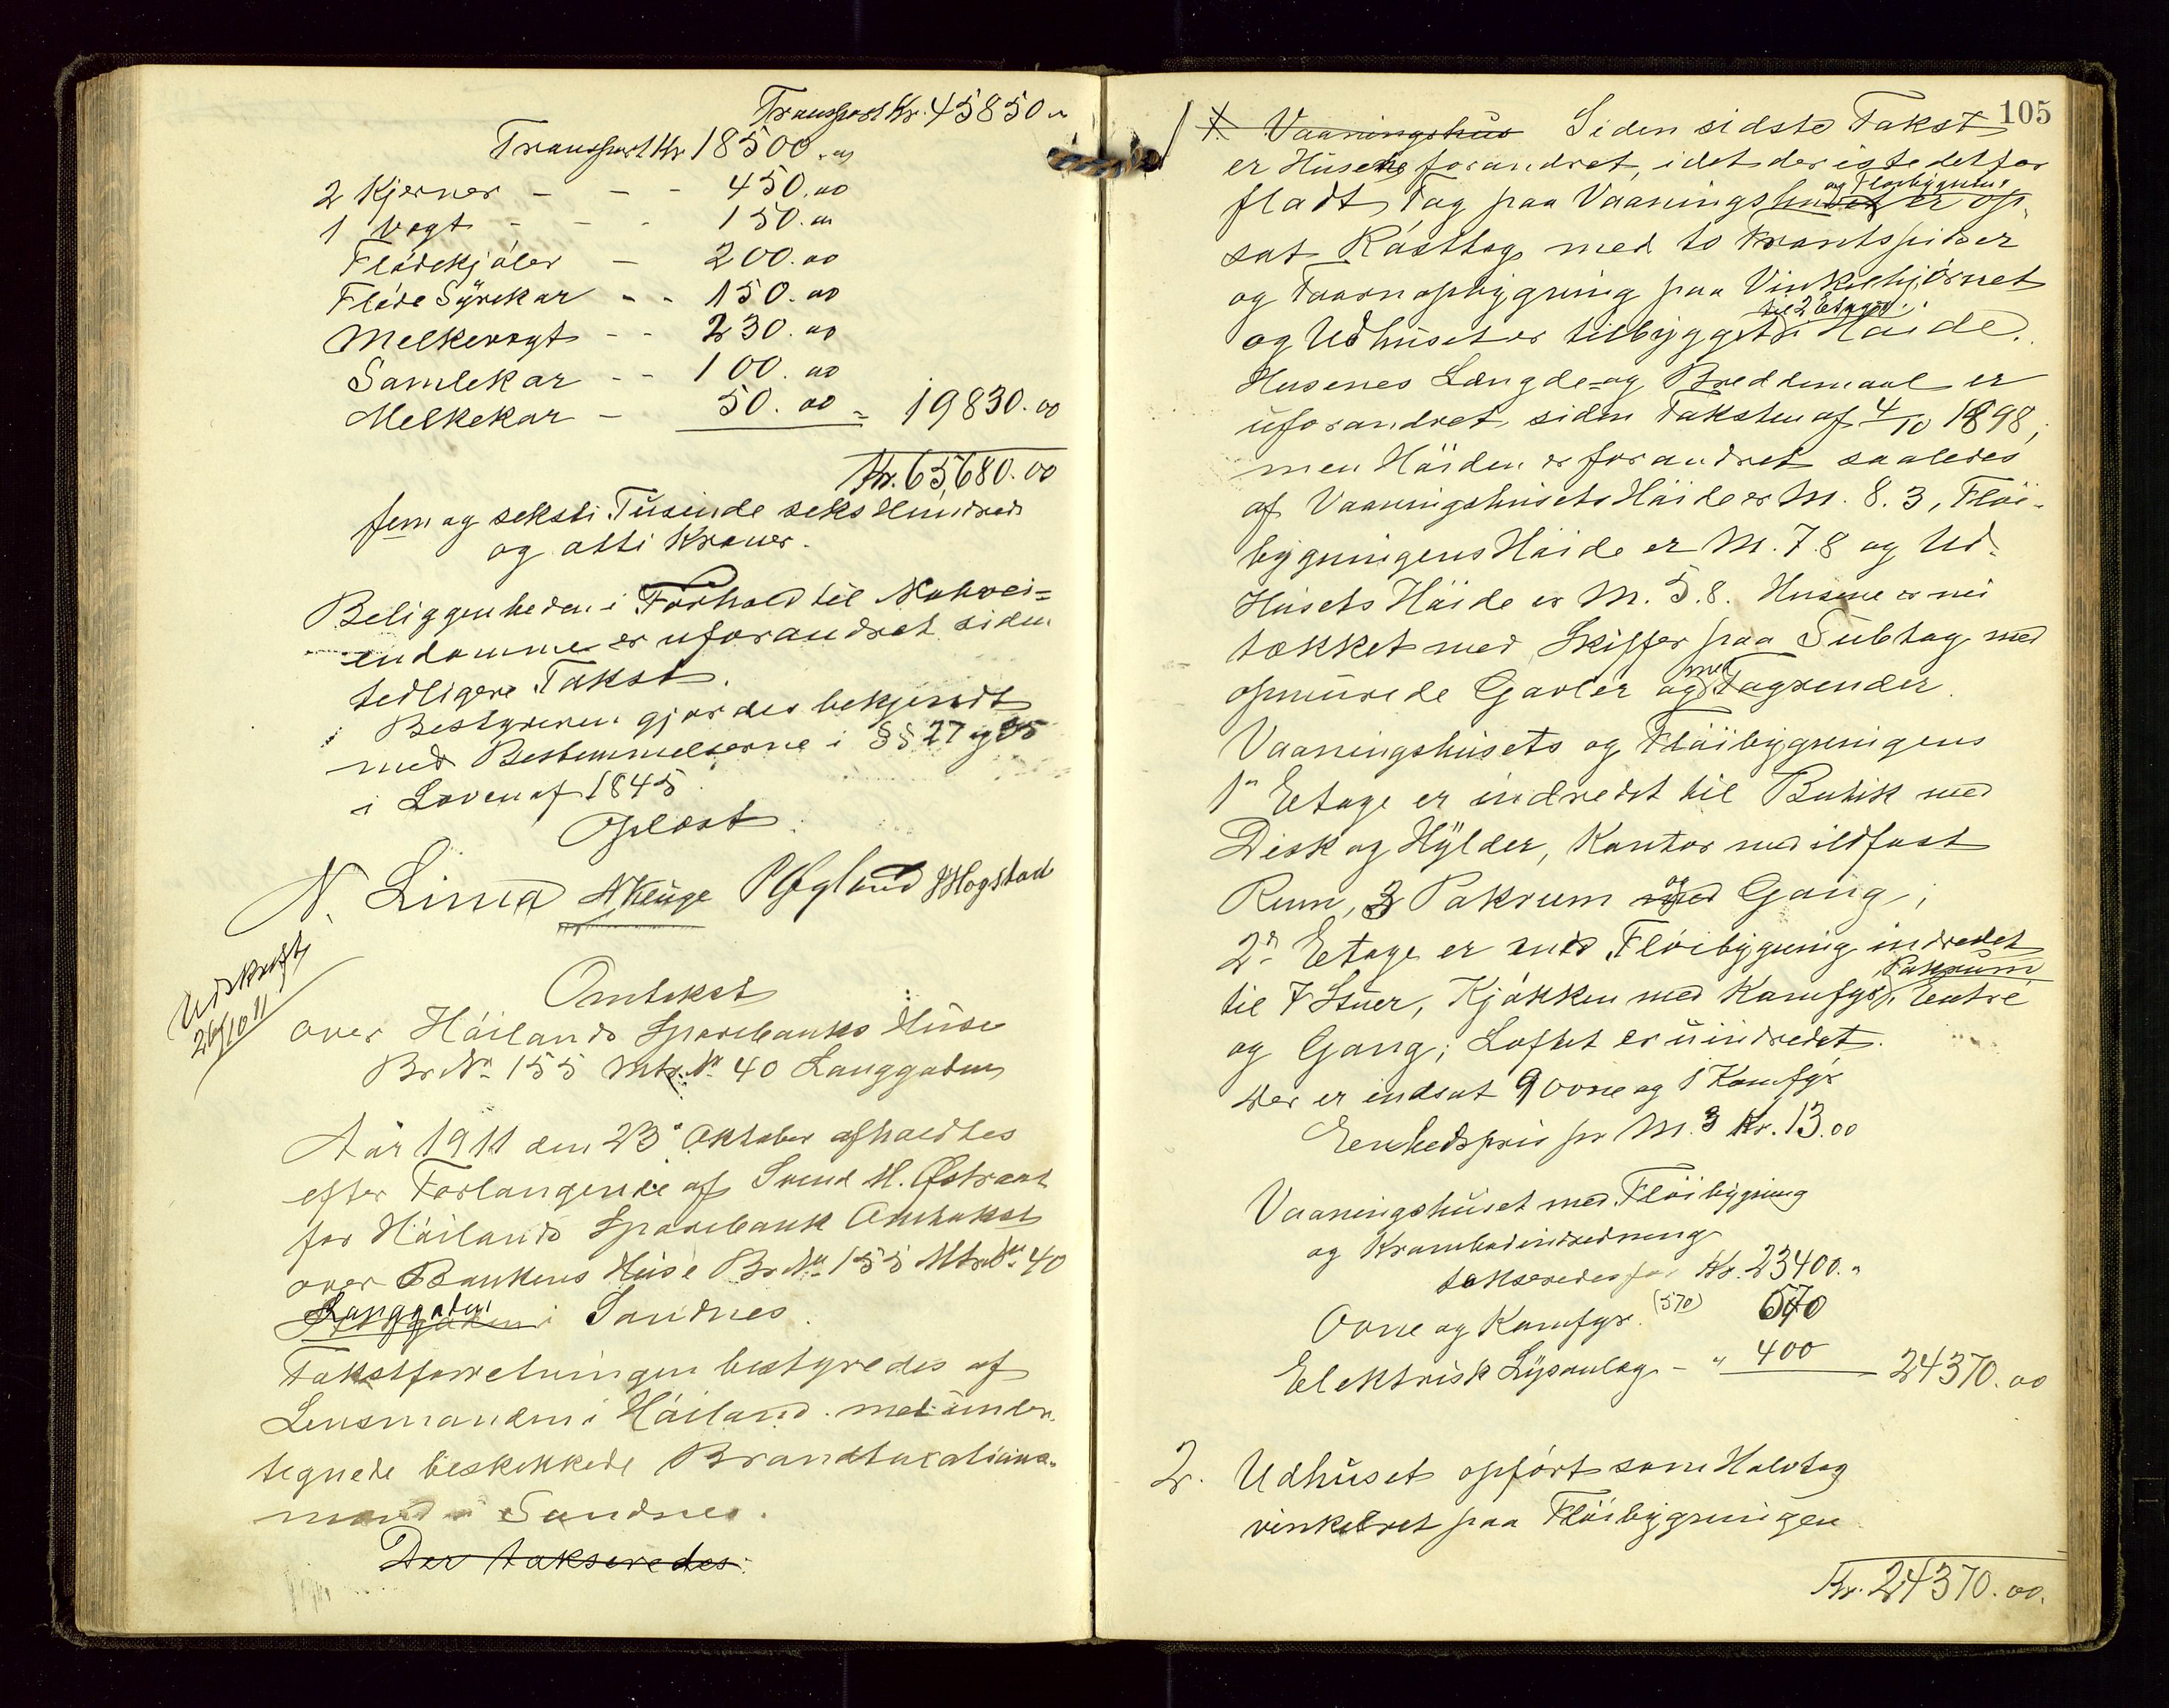 Transport Kr. 45850 "
Transport Kr 18500.00
2 Kjerner - - - 450.00
1 Vegt - - - 150.00
Flødekjøler - 200.00
Fløde Syrekar - - 150.00
Melkevegt - - 230.00
Samlekar - - 100.00
Melkekar - 50.00 = 19830.00
Kr. 65,680.00
fem og seksti Tusinde seks Hundrede
og otti Kroner.
Beliggenheden i Forhold til Naboei=
endomme er uforandret siden
tedligere Takst.
Bestyreren gjordes bekjendt
med Bestemmelserne i §§ 27 og 35
i Loven af 1845.
Oplæst:
N. Lima A Kluge P Øglænd J Hogstad
Udskrift
26/10 11
Omtakst
over Høilands Sparebanks Huse
Br. No 155 Mtr. No 40 Langgaden
Aar 1911 den 23de Oktober afholdtes
efter Forlangende af Svend H. Østraat
for Høilands Sparebank Omtakst
over Bankens Huse Br No 155 Mtr No 40
Langgaden i Sandnes.
Takstforretningen bestyredes af
Lensmanden i Høiland med under-
tegnede beskikkede Brandtaxations-
mænd i Sandnes.
Der takseredes:
105
1. Vaaningshus Siden sidste Takst
er Husene forandret, idet der istedetfor
og Fløibygning
fladt Tag paa Vaaningshuset er op-
sat Røsttag med to Krantspidser
og Taarnopbygning paa Vinkelhjørnet
til 2 Etager
og Udhuset er tilbygget i Høide.
Husenes Længde- og Breddemaal er
uforandret siden Taksten af 4/10 1898,
men Høiden er forandret saaledes
af Vaaningshusets Høide er M. 8.3, Fløi-
bygningens Høide er M. 7.8 og Ud-
husets Høide er M. 5.8. Husene er nu
tækket med Skiffer paa Subtag med
med
opmurede Gavler og Tagrender.
Vaaningshusets og Fløibygningens
1ste Etage er indredet til Butik med
Disk og Hylder, Kontor med ildfast
og
Rum, 3 Pakrum med Gang;
2den Etage er med Fløibygning indredet
Pakrum
til 7 Stuer, Kjøkken med Komfyr, Entré
og Gang; Loftet er uindredet.
Der er indsat 9 Ovne og 1 Komfyr
Eenhedspris pr M.3 Kr. 13.00
Vaaningshuset med Fløibygning
og Krambodindredning
takseredes for Kr. 23400."
Ovne og Komfyr (570) 570
Elektrisk Lysanlæg - " 400 24370.00
2. Udhuset opført som Halvtag
vinkelret paa Fløibygningen
Kr. 24370.00.